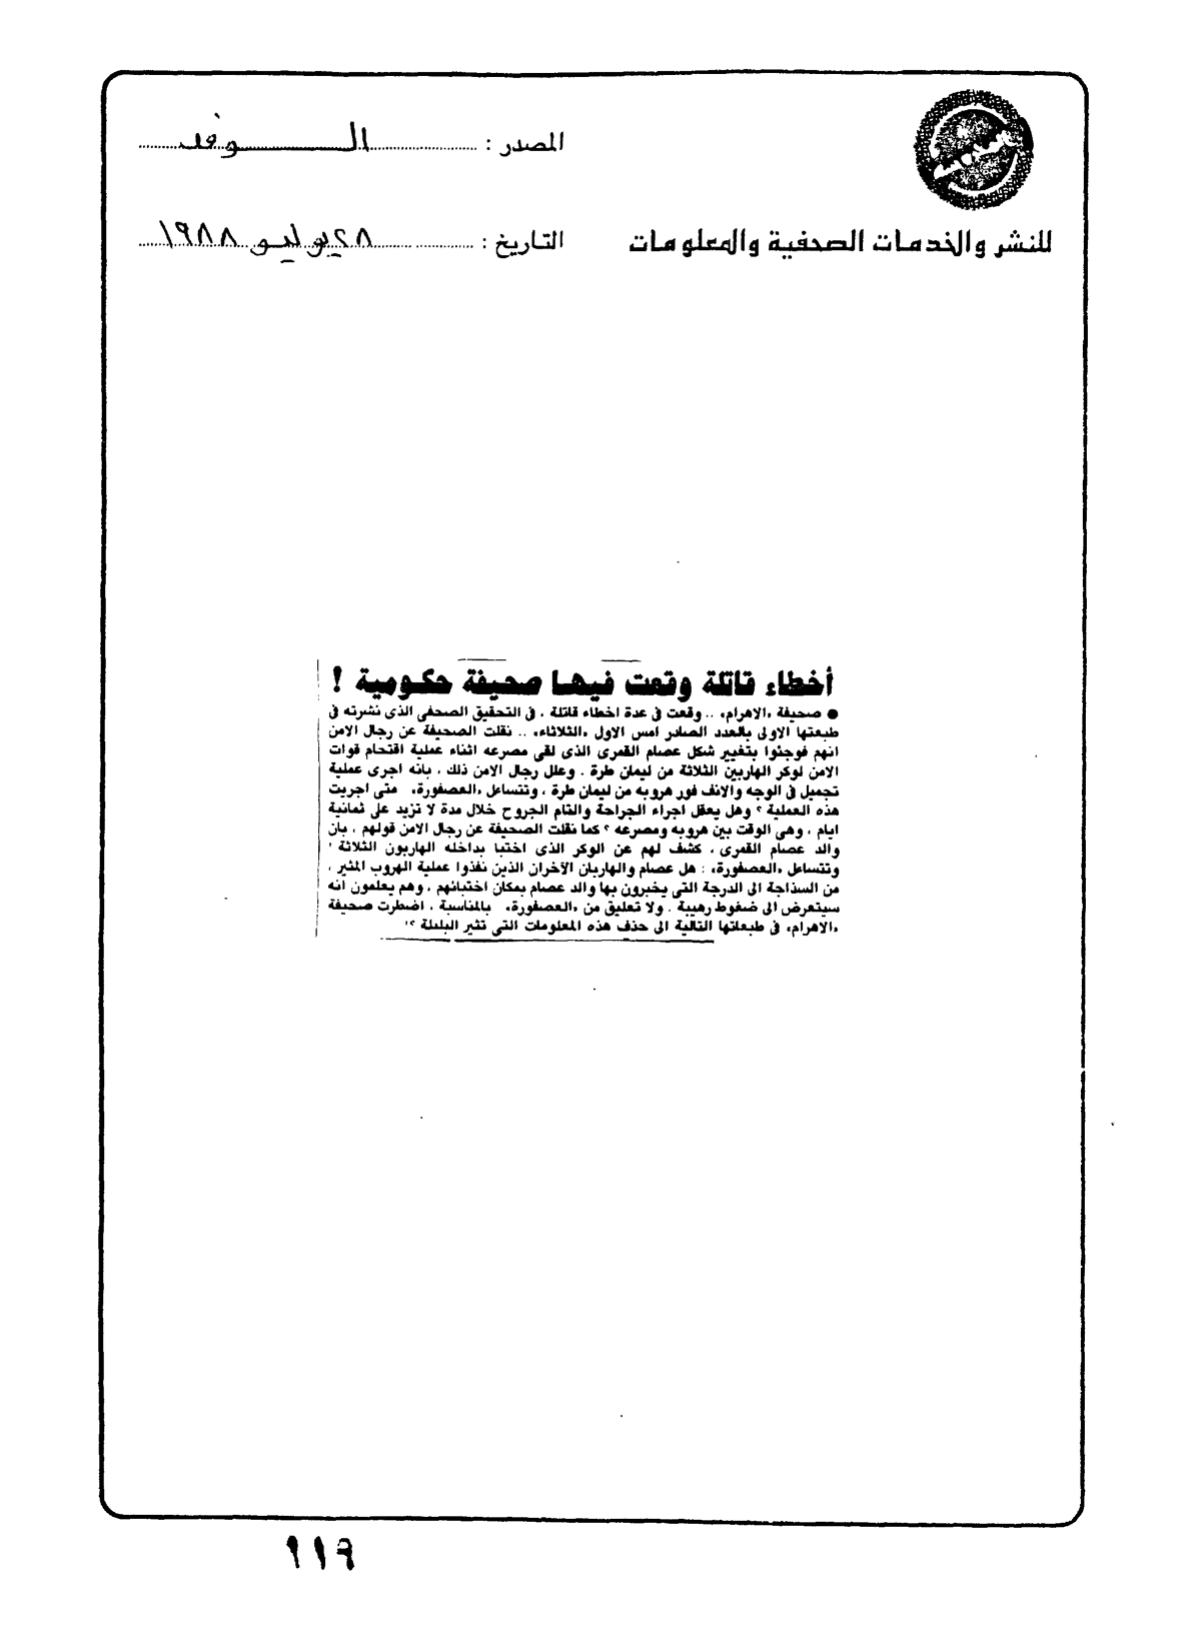 المصدر : الـــوفد
للنشر والخدمات الصحفية والمعلومات
التاريخ : ٢٨ يوليو ١٩٨٨
أخطاء قاتلة وقعت فيها صحيفة حكومية !
● صحيفة «الاهرام» .. وقعت فى عدة اخطاء قاتلة ، فى التحقيق الصحفى الذى نشرته فى
طبعتها الاولى بالعدد الصادر امس الاول «الثلاثاء» .. نقلت الصحيفة عن رجال الامن
انهم فوجئوا بتغيير شكل عصام القمرى الذى لقى مصرعه اثناء عملية اقتحام قوات
الامن لوكر الهاربين الثلاثة من ليمان طرة . وعلل رجال الامن ذلك ، بانه اجرى عملية
تجميل فى الوجه والانف فور هروبه من ليمان طرة ، وتتساءل «العصفورة» متى اجريت
هذه العملية ؟ وهل يعقل اجراء الجراحة والتام الجروح خلال مدة لا تزيد على ثمانية
ايام ، وهى الوقت بين هروبه ومصرعه ؟ كما نقلت الصحيفة عن رجال الامن قولهم ، بأن
والد عصام القمرى ، كشف لهم عن الوكر الذى اختبا بداخله الهاربون الثلاثة !
وتتساءل «العصفورة» : هل عصام والهاربان الآخران الذين نفذوا عملية الهروب المثير ،
من السذاجة الى الدرجة التى يخبرون بها والد عصام بمكان اختبائهم ، وهم يعلمون انه
سيتعرض الى ضغوط رهيبة . ولا تعليق من «العصفورة» بالمناسبة ، اضطرت صحيفة
«الاهرام» فى طبعاتها التالية الى حذف هذه المعلومات التى تثير البلبلة ؟!
١١٩